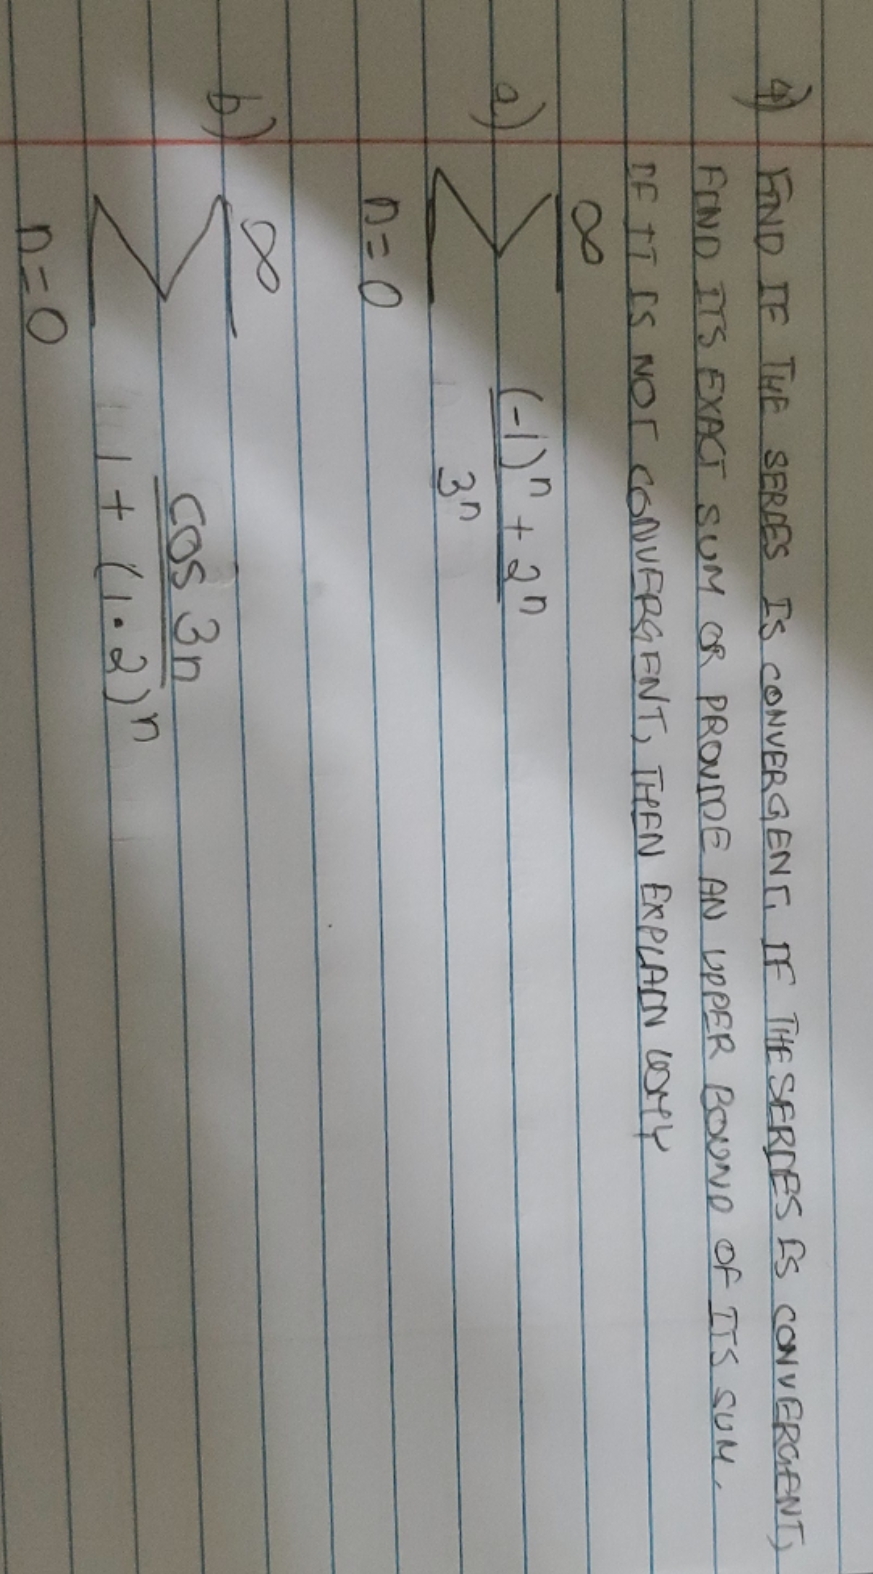 4) FIND IF THE SERIES IS CONVERGENT. IF THE SERIES IS CONVERGENT,
FIND ITS EXACT SUM OR PROVIDE AN UPPER BOUND OF ITS SUM.
IF IT IS NOT CONVERGENT, THEN EXPLAIN WHY
a) ∞
∑ (-1)ⁿ + 2ⁿ
3ⁿ
n=0
b) ∞
∑ cos 3n
1 + (1.2)ⁿ
n=0